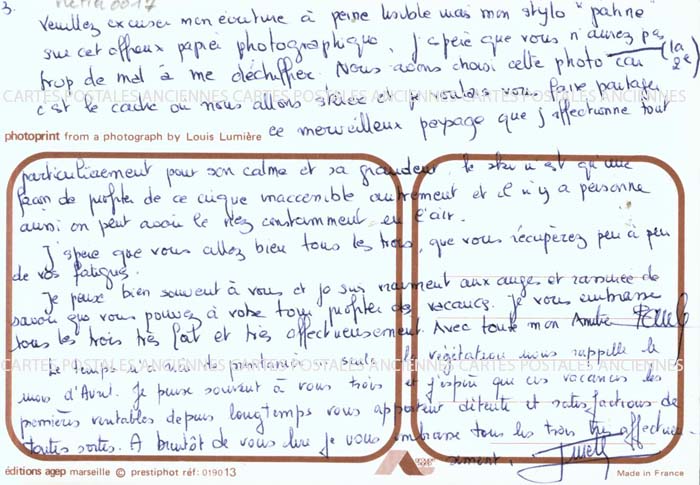 3.
Veuillez excuser mon écriture à peine lisible mais mon stylo "patine"
sur cet affreux papier photographique, j'espère que vous n'aurez pas
trop de mal à me déchiffrer. Nous avons choisi cette photo car (la 2e)
CARTES POSTALES ANCIENNES CARTES POSTALES ANCIENNES CARTES POSTALES ANCIENNES
c'est le cadre où nous allons skier et je voulais vous faire partager
photoprint from a photograph by Louis Lumière
ce merveilleux paysage que j'affectionne tout
particulièrement pour son calme et sa grandeur, le ski n'est qu'une
façon de profiter de ce cirque inaccessible autrement et il n'y a personne
aussi on peut avoir le nez constamment en l'air.
J'espère que vous allez bien tous les trois, que vous récupérez peu à peu
de vos fatigues.
Je pense bien souvent à vous et je suis vraiment aux anges et rassurée de
savoir que vous pouvez à votre tour profiter des vacances. Je vous embrasse
tous les trois très fort et très affectueusement. Avec toute mon Amitié
Le temps n'a rien de printanier, seule la végétation nous rappelle le
CARTES POSTALES ANCIENNES CARTES POSTALES ANCIENNES CARTES POSTALES ANCIENNES
mois d'Avril. Je pense souvent à vous trois et j'espère que ces vacances les
premières véritables depuis longtemps vous apportent détente et satisfactions de
toutes sortes. A bientôt de vous lire je vous embrasse tous les trois très affectueu-
sement.
éditions agep marseille © prestiphot réf: 019013
Made in France